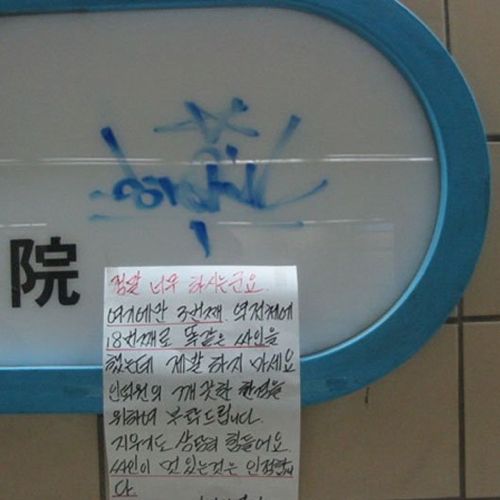 院
정말 너무 하시는군요.
여기에만 3번째. 역전체에
18번째로 똑같은 싸인을
했는데 제발 하지 마세요
깨끗한 환경을
위하여 부탁드립니다.
지우기도 상당히 힘들어요.
싸인이 멋있는것은 인정합니
다.